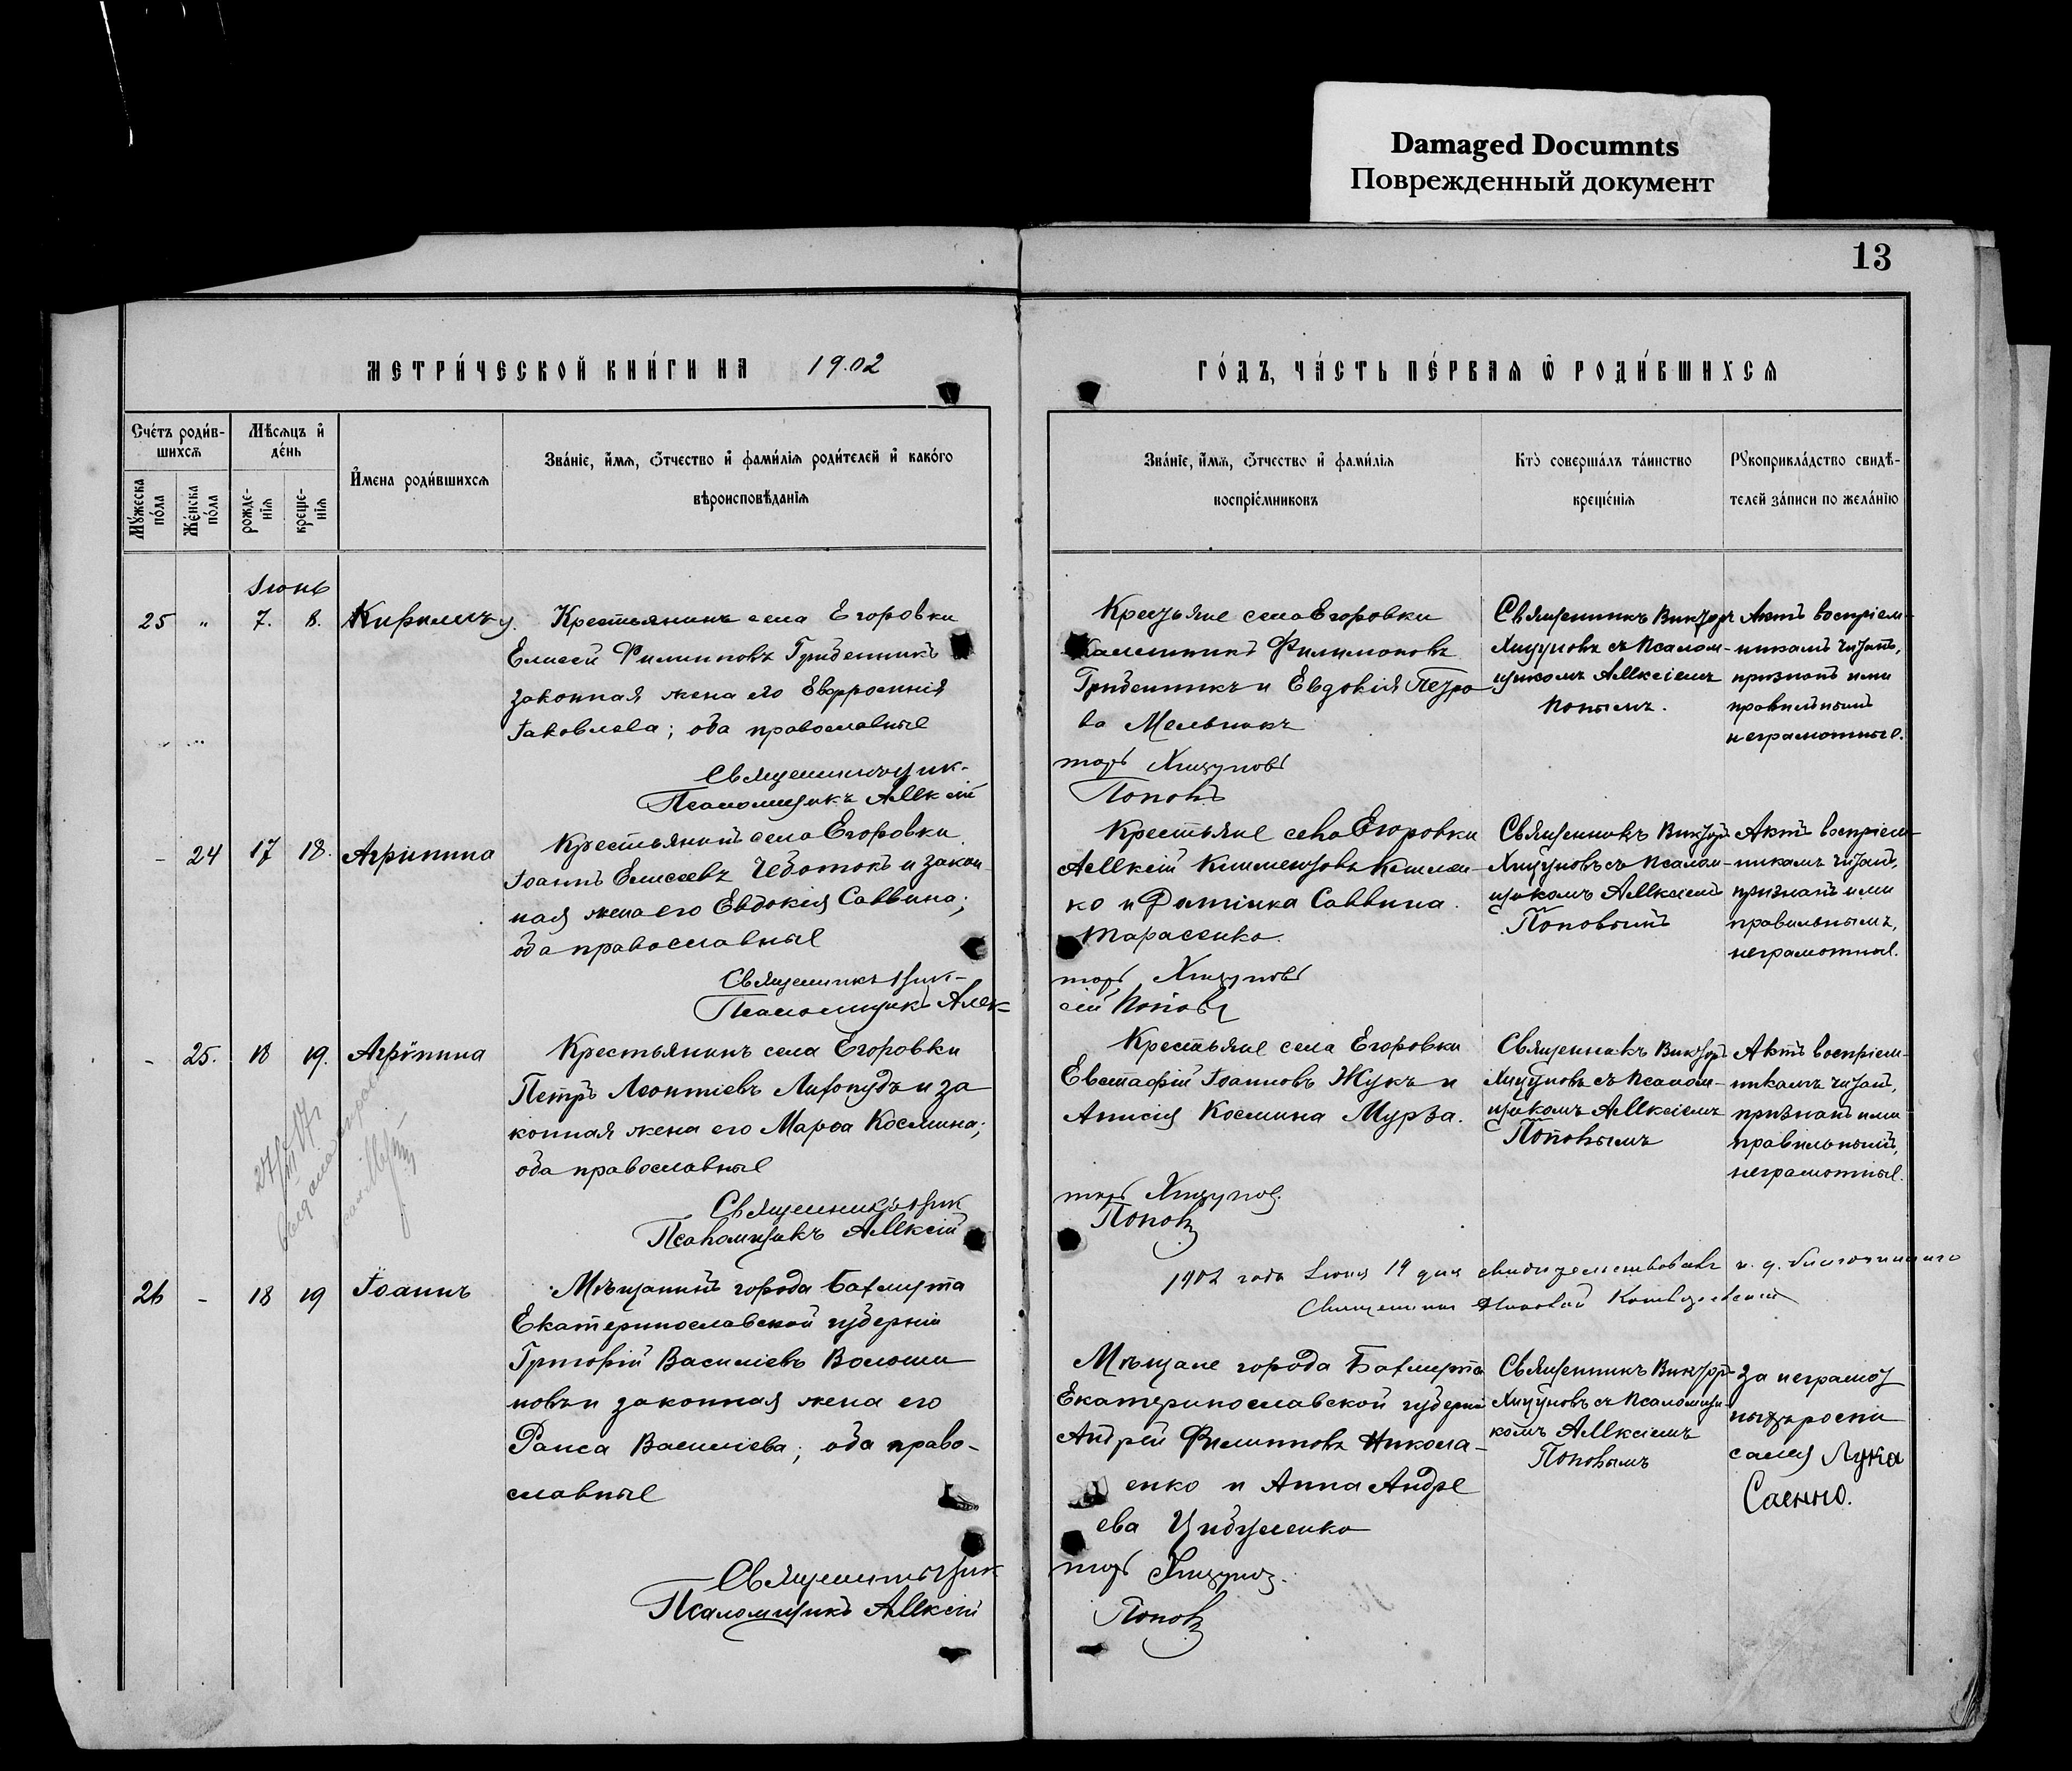 Damaged Documnts
Поврежденный документ
13
МЕТРИ́ЧЕСКОЙ КНИ́ГИ НА 1902
ГО́ДЪ, ЧА́СТЬ ПЕ́РВАѦ Ѡ҆ РОДИ́ВШИХСѦ
Сче́тъ роди́в-
шихсѧ
Мѣ́сѧцъ и҆
де́нь
Мꙋ́жеска
по́ла
Же́нска
по́ла
рожде-
нїѧ
креще-
нїѧ
И҆мена роди́вшихсѧ
Зва́нїе, и҆́мѧ, ѻ҆́тчество и҆ фами́лїѧ роди́телей и҆ како́гѡ
вѣроисповѣ́данїѧ
Зва́нїе, и҆́мѧ, ѻ҆́тчество и҆ фами́лїѧ
воспрїе́мниковъ
Кто̀ соверша́лъ та́инство
креще́нїѧ
Рꙋкоприкла́дство свидѣ́-
телей за́писи по жела́нїю
Іюнь
25 " 7. 8. Кириллъ
Крестьянинъ села Егоровки
Елисей Филипповъ Гребенникъ
законная жена его Евфросинія
Іаковлева; оба православные
Священникъ Вик-
Псаломщикъ Алексій
Крестьяне села Егоровки
Филимоновъ
Гребенникъ и Евдокія Петро
ва Мельникъ
торъ Хицуновъ
Поповъ
Священникъ Викторъ
Хицуновъ съ псалом-
щикомъ Алексіемъ
Поповымъ.
Актъ воспріем-
никамъ читанъ,
признанъ ими
правильнымъ
неграмотные.
- 24 17 18. Агрипина
Крестьянинъ села Егоровки
Іоаннъ Елисеевъ Чеботокъ и закон
ная жена его Евдокія Саввина;
оба православные
Священникъ Вик-
Псаломщикъ Алек-
Крестьяне села Егоровки
Алексій Климентовъ
ко и Саввина
Тарасенко.
торъ Хицуновъ
сій Поповъ
Священникъ Викторъ
Хицуновъ съ псалом-
щикомъ Алексіемъ
Поповымъ
Актъ воспріем-
никамъ читанъ,
признанъ ими
правильнымъ,
неграмотные.
- 25. 18 19. Агрипина
Крестьянинъ села Егоровки
Петръ Леонтіевъ и за
конная жена его Марѳа Космина;
оба православные
Священникъ Вик
Псаломщикъ Алексій
Крестьяне села Егоровки
Евстафій Іоанновъ Жукъ и
Анисія Космина Мурза.
торъ Хицуновъ
Поповъ
Священникъ Викторъ
Хицуновъ съ псалом-
щикомъ Алексіемъ
Поповымъ
Актъ воспріем-
никамъ читанъ,
признанъ ими
правильнымъ,
неграмотные.
1902 года Іюня 19 дня свидетельствовалъ и. д. благочиннаго
Священникъ
26 - 18 19 Іоаннъ
Мѣщанинъ города Бахмута
Екатеринославской губерніи
Григорій Василіевъ Волоши
новъ и законная жена его
Раиса Василіева; оба право-
славные
Священникъ Вик
Псаломщикъ Алексій
Мѣщане города Бахмута
Екатеринославской губерніи
Андрей Филипповъ Никола-
енко и Анна Андре
ева Цибуленко
торъ Хицуновъ
Поповъ
Священникъ Викторъ
Хицуновъ съ псаломщи-
комъ Алексіемъ
Поповымъ
За неграмот
ныхъ роспи
сался Лука
Саенко.